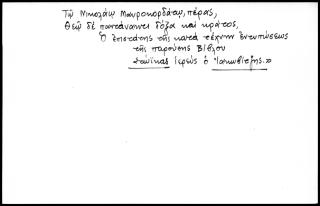 Τῷ Νικολάῳ Μαυροκορδάτῳ, πέρας,
Θεῷ δὲ παντάνακτι δόξα καὶ κράτος,
Ὁ ἐπιστάτης τῆς κατὰ τέχνην ἐντυπώσεως
τῆς παρούσης Βίβλου
Ἱερεὺς ὁ